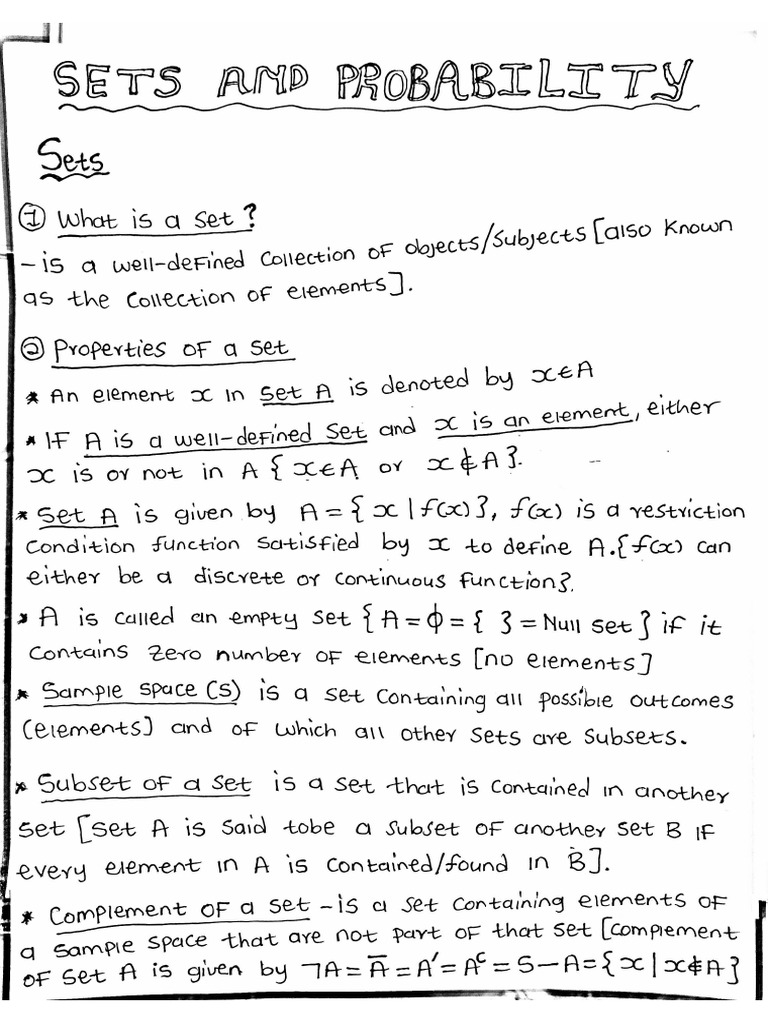 SETS AND PROBABILITY
Sets
① What is a set?
-is a well-defined collection of objects/subjects [also known
as the collection of elements].
② Properties of a set
* An element x in set A is denoted by x∈A
* If A is a well-defined set and x is an element, either
x is or not in A {x∈A or x∉A}.
* Set A is given by A = {x | f(x)}, f(x) is a restriction
condition function satisfied by x to define A.{f(x) can
either be a discrete or continuous function}.
* A is called an empty set {A = ϕ = { } = Null set} if it
contains zero number of elements [no elements]
* Sample space (S) is a set containing all possible outcomes
(elements] and of which all other sets are subsets.
* Subset of a set is a set that is contained in another
set [set A is said tobe a subset of another set B if
every element in A is contained/found in B].
* Complement of a set -is a set containing elements of
a sample space that are not part of that set [complement
of set A is given by ¬A = A̅ = A′ = Aᶜ = S - A = {x | x∉A}